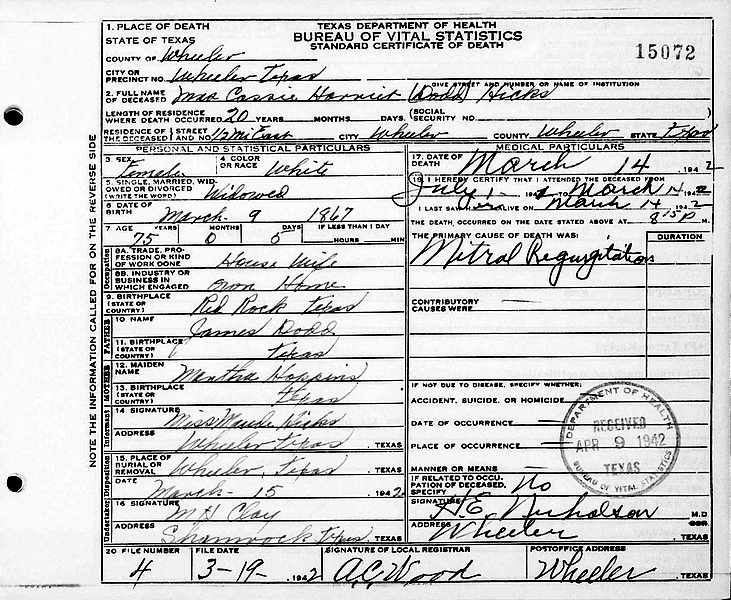 1. PLACE OF DEATH
STATE OF TEXAS
TEXAS DEPARTMENT OF HEALTH
BUREAU OF VITAL STATISTICS
STANDARD CERTIFICATE OF DEATH
15072
COUNTY OF Wheeler
CITY OR PRECINCT NO. Wheeler Texas
GIVE STREET AND NUMBER OR NAME OF INSTITUTION
2. FULL NAME OF DECEASED Mrs Cassie Harriet (Dodd) Hicks
LENGTH OF RESIDENCE WHERE DEATH OCCURRED 20 YEARS MONTHS DAYS (SOCIAL SECURITY NO.
RESIDENCE OF THE DECEASED STREET AND NO. CITY Wheeler COUNTY Wheeler STATE Texas
PERSONAL AND STATISTICAL PARTICULARS
3 SEX Female
4 COLOR OR RACE White
5 SINGLE, MARRIED, WIDOWED OR DIVORCED (WRITE THE WORD) Widowed
6 DATE OF BIRTH March 9 1867
7 AGE YEARS MONTHS DAYS IF LESS THAN 1 DAY
75 0 5 HOURS MIN
Occupation
8A. TRADE, PROFESSION OR KIND OF WORK DONE House Wife
8B. INDUSTRY OR BUSINESS IN WHICH ENGAGED Own Home
9 BIRTHPLACE (STATE OR COUNTRY) Red Rock Texas
FATHER
10 NAME James Dodd
11. BIRTHPLACE (STATE OR COUNTRY) Texas
MOTHER
12. MAIDEN NAME Martha Hoppins
13. BIRTHPLACE (STATE OR COUNTRY) Texas
Informant
14 SIGNATURE Miss Maude Hicks
ADDRESS Wheeler Texas , TEXAS
Disposition
15. PLACE OF BURIAL OR REMOVAL Wheeler, Texas , TEXAS
DATE March 15 1942
Undertaker
16 SIGNATURE M H Clay
ADDRESS Shamrock Texas , TEXAS
MEDICAL PARTICULARS
17. DATE OF DEATH March 14 , 1942
18. I HEREBY CERTIFY THAT I ATTENDED THE DECEASED FROM
July 1 - 194 TO March 14 1942
I LAST SAW ALIVE ON March 14 1942
THE DEATH OCCURRED ON THE DATE STATED ABOVE AT 8:15 P M.
THE PRIMARY CAUSE OF DEATH WAS: DURATION
Mitral Regurgitation
CONTRIBUTORY CAUSES WERE
IF NOT DUE TO DISEASE, SPECIFY WHETHER:
ACCIDENT, SUICIDE, OR HOMICIDE
DATE OF OCCURRENCE
PLACE OF OCCURRENCE
MANNER OR MEANS
IF RELATED TO OCCUPATION OF DECEASED, SPECIFY No
SIGNATURE H.E. Nicholson M.D
ADDRESS Wheeler , TEXAS
DEPARTMENT OF HEALTH
RECEIVED
APR 9 1942
TEXAS
BUREAU OF VITAL STATISTICS
20 FILE NUMBER FILE DATE SIGNATURE OF LOCAL REGISTRAR POSTOFFICE ADDRESS
4 3-19- 1942 A.C. Wood Wheeler , TEXAS
NOTE THE INFORMATION CALLED FOR ON THE REVERSE SIDE